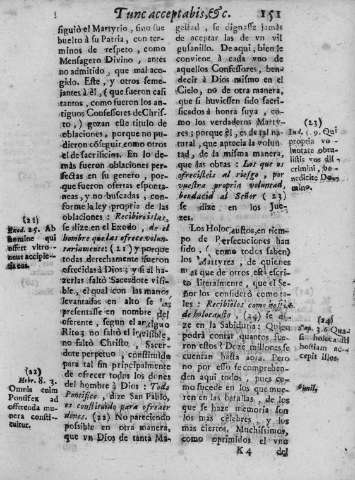 Tunc acceptabis, &c.
151
siguiò el Martyrio, sino fue
buelto à su Patria, con ter-
minos de respeto, como
Mensagero Divino, antes
no admitido, que mal aco-
gido. Este, y otros seme-
jantes à èl, (que fueron casi
tantos, como fueron los an-
tiguos Confessores de Chris-
to) gozan este titulo de
oblaciones, porque no pu-
dieron cõseguir como otros
el de sacrificios. En lo de-
màs fueron oblaciones per-
fectas en su genero, por-
que fueron ofertas esponta-
neas, y no buscadas, con-
forme la ley propria de las
oblaciones: Recibireis las,
se dize en el Exodo, de el
hombre que las ofrece volun-
tariamente (21) y porque
todas derechamente fueron
ofrecidas à Dios; y si al ha-
zerlas faltò Sacerdote visi-
ble, el qual con las manos
levantadas en alto se
presentasse en nombre del
oferente, segun el antiguo
Rito; no faltò el invisible,
no faltò Christo, Sacer-
dote perpetuo, constituìdo
para tal fin principalmente
de ofrecer todos los dones
del hombre à Dios: Todo
Pontifice, dize San Pablo,
es constituìdo para ofrecer
dones. (22) No pareciendo
possible en otra manera,
que vn Dios de tanta Ma-
(21)
Exod. 25. Ab
homine qui
offert vltro-
neus accipie-
tis eas.
(22)
Hebr. 8. 3.
Omnis enim
Pontifex ad
offerenda
munera const-
ituitur.
gestad, se dignasse jamàs
de aceptar las de vn vil
gusanillo. De aqui, bien le
conviene à cada vno de
aquellos Confessores, ben-
decir à Dios mismo en el
Cielo, no de otra manera,
que si huviessen sido sacri-
ficados à honra suya, co-
mo los verdaderos Marty-
res; porque èl, es de tal na-
tural, que aprecia la volun-
tad, de la misma manera,
que las obras: Los que os
ofrecisteis al riesgo, por
vuestra propria voluntad,
bendecid al Señor (23)
se dize en los Jue-
zes.
Los Holocaustos, en tiem-
po de Persecuciones han
sido, (como todos saben)
los Martyres, de quienes
mas que de otros està escri-
to literalmente, que el Se-
ñor los considerò como ta-
les: Recibiòlos como hostia de
holocausto, (24) se di-
ze en la Sabiduria: Quien
podrà contar quantos fue-
ron estos? Doze millones se
cuentan hasta aora. Pero
no por esso se comprehen-
den aqui todos, pues co-
mo sucede en los que mue-
ren en las batallas, de los
que se haze memoria son
los menos. Muchissimos,
como oprimidos del vno
K 4
del
(23)
Iud. 5. 9. Qui
propria vo-
luntate obtu-
listis vos dis-
crimini, be-
nedicite Dom-
ino.
(24)
Sap. 3. 6. Qua-
si holocausti
hostiam ac-
cepit illos.
Simil.